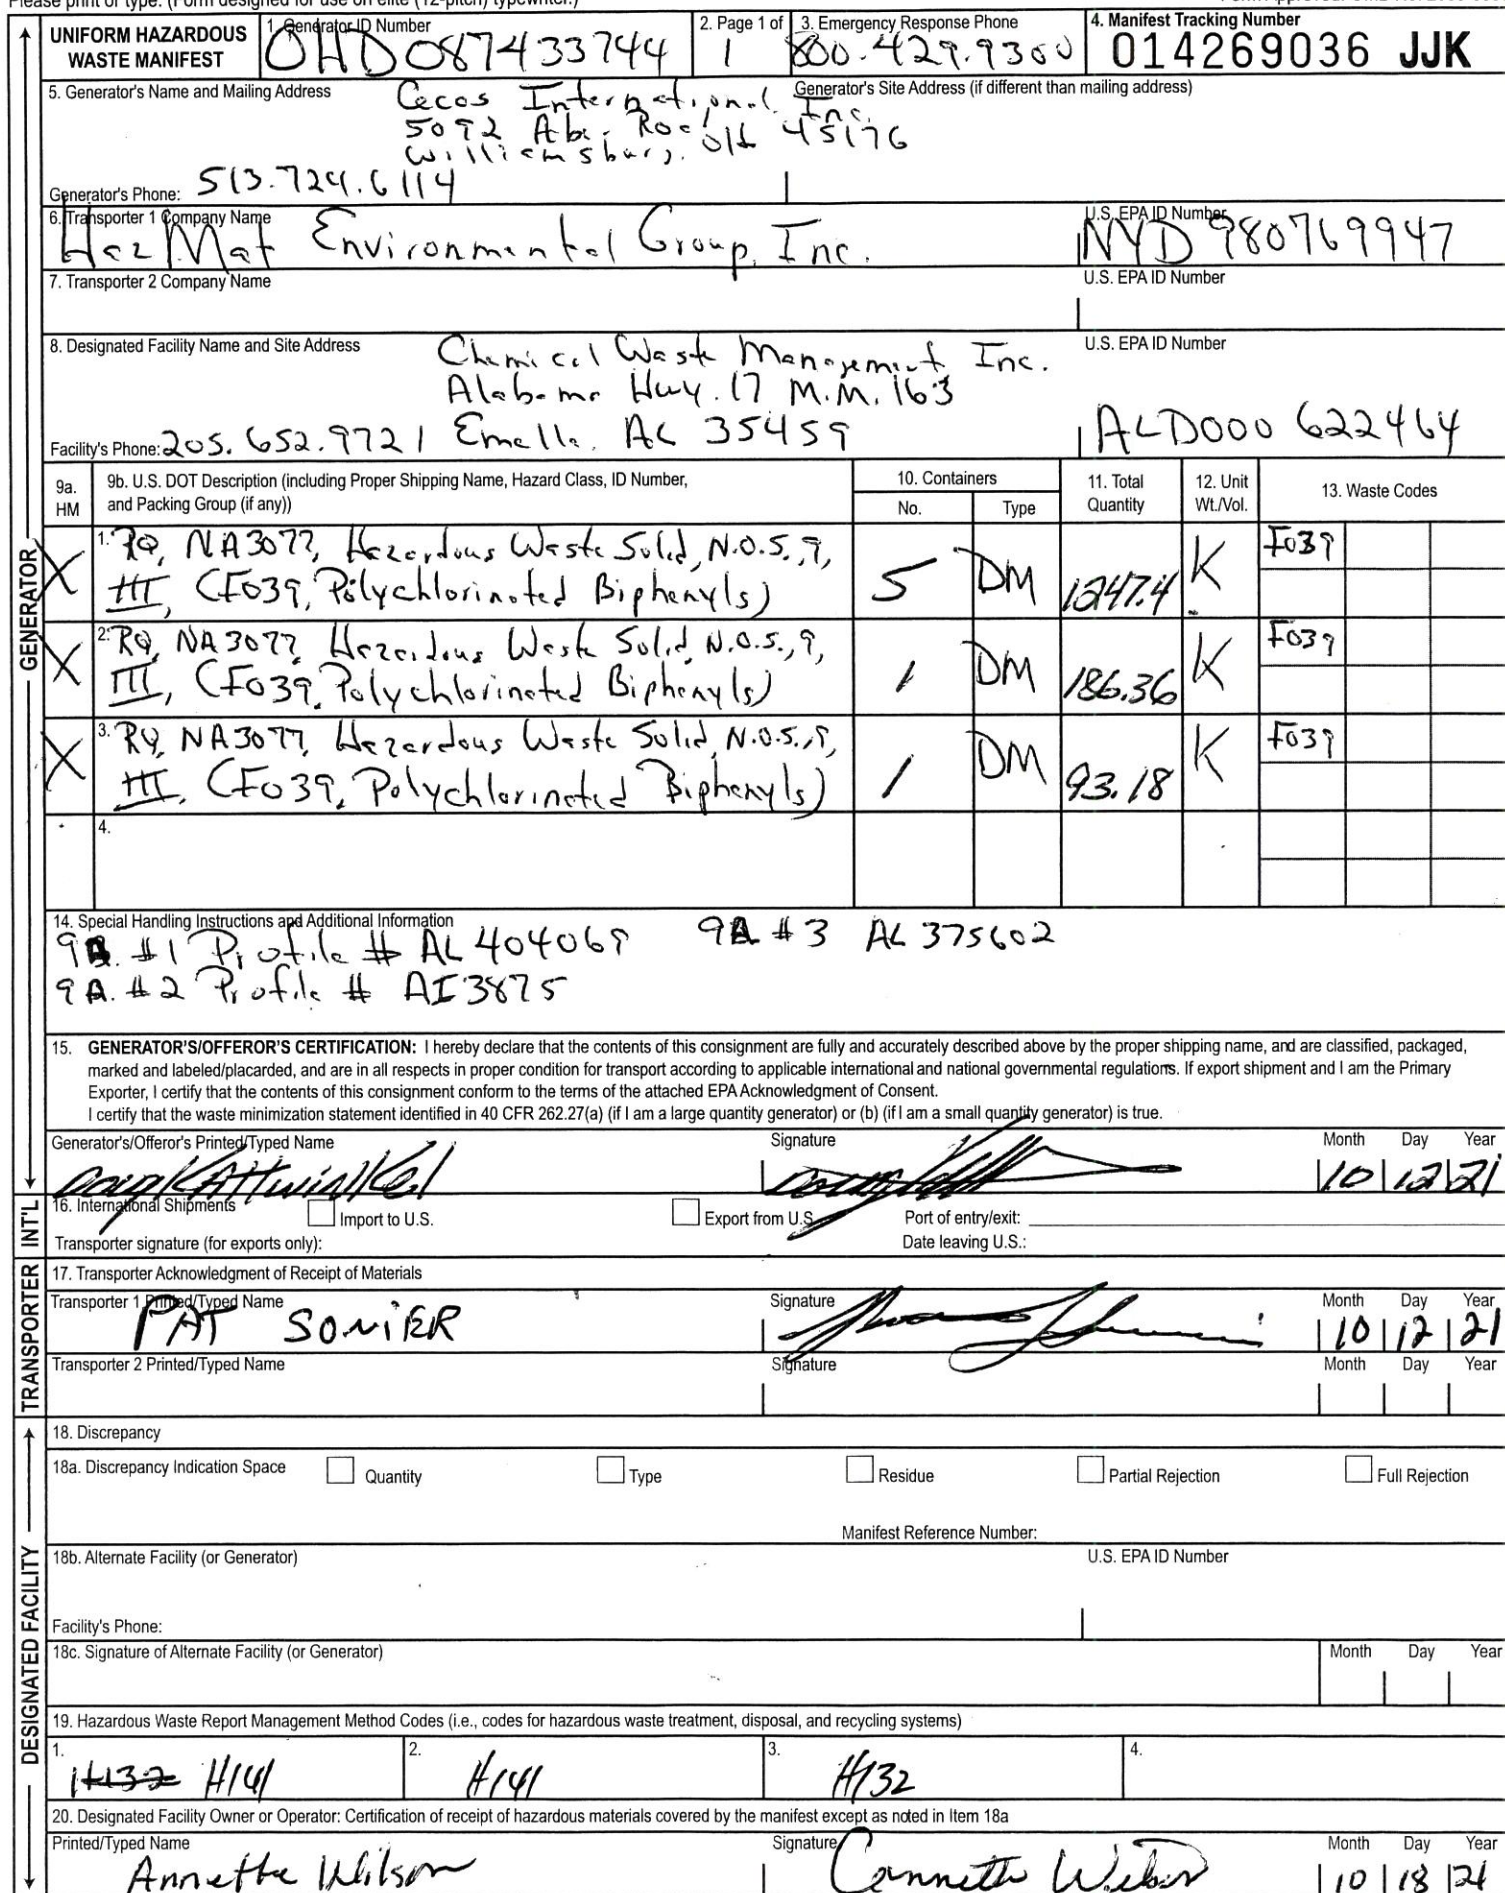 Please print or type. (Form designed for use on elite (12-pitch) typewriter.)
UNIFORM HAZARDOUS WASTE MANIFEST
1. Generator ID Number
OHD087433744
2. Page 1 of
1
3. Emergency Response Phone
800.429.9300
4. Manifest Tracking Number
014269036 JJK
5. Generator's Name and Mailing Address
Generator's Site Address (if different than mailing address)
Cecos International Inc.
5092 Aber Road
Williamsburg, OH 45176
Generator's Phone: 513.724.6114
6. Transporter 1 Company Name
HazMat Environmental Group, Inc.
U.S. EPA ID Number
NYD 980769947
7. Transporter 2 Company Name
U.S. EPA ID Number
8. Designated Facility Name and Site Address
Chemical Waste Management Inc.
Alabama Hwy. 17 M.M. 163
Emelle, AL 35459
Facility's Phone: 205.652.9721
U.S. EPA ID Number
ALD000 622464
9a. HM
9b. U.S. DOT Description (including Proper Shipping Name, Hazard Class, ID Number, and Packing Group (if any))
10. Containers
No.
Type
11. Total Quantity
12. Unit Wt./Vol.
13. Waste Codes
GENERATOR
X 1. RQ, NA3077, Hazardous Waste Solid, N.O.S., 9,
III, (F039, Polychlorinated Biphenyls) 5 DM 1247.4 K F039
X 2. RQ, NA3077, Hazardous Waste Solid, N.O.S., 9,
III, (F039, Polychlorinated Biphenyls) 1 DM 186.36 K F039
X 3. RQ, NA3077, Hazardous Waste Solid, N.O.S., 9,
III, (F039, Polychlorinated Biphenyls) 1 DM 93.18 K F039
4.
14. Special Handling Instructions and Additional Information
9A. #1 Profile # AL404069 9A #3 AL 375602
9A. #2 Profile # AI3875
15. GENERATOR'S/OFFEROR'S CERTIFICATION: I hereby declare that the contents of this consignment are fully and accurately described above by the proper shipping name, and are classified, packaged,
marked and labeled/placarded, and are in all respects in proper condition for transport according to applicable international and national governmental regulations. If export shipment and I am the Primary
Exporter, I certify that the contents of this consignment conform to the terms of the attached EPA Acknowledgment of Consent.
I certify that the waste minimization statement identified in 40 CFR 262.27(a) (if I am a large quantity generator) or (b) (if I am a small quantity generator) is true.
Generator's/Offeror's Printed/Typed Name
Signature
Month Day Year
10 12 21
INT'L
16. International Shipments
Import to U.S.
Export from U.S.
Port of entry/exit:
Transporter signature (for exports only):
Date leaving U.S.:
TRANSPORTER
17. Transporter Acknowledgment of Receipt of Materials
Transporter 1 Printed/Typed Name
PAT SONIER
Signature
Month Day Year
10 12 21
Transporter 2 Printed/Typed Name
Signature
Month Day Year
DESIGNATED FACILITY
18. Discrepancy
18a. Discrepancy Indication Space
Quantity
Type
Residue
Partial Rejection
Full Rejection
Manifest Reference Number:
18b. Alternate Facility (or Generator)
U.S. EPA ID Number
Facility's Phone:
18c. Signature of Alternate Facility (or Generator)
Month Day Year
19. Hazardous Waste Report Management Method Codes (i.e., codes for hazardous waste treatment, disposal, and recycling systems)
1. H132 H141
2. H141
3. H132
4.
20. Designated Facility Owner or Operator: Certification of receipt of hazardous materials covered by the manifest except as noted in Item 18a
Printed/Typed Name
Annette Wilson
Signature
Month Day Year
10 18 21